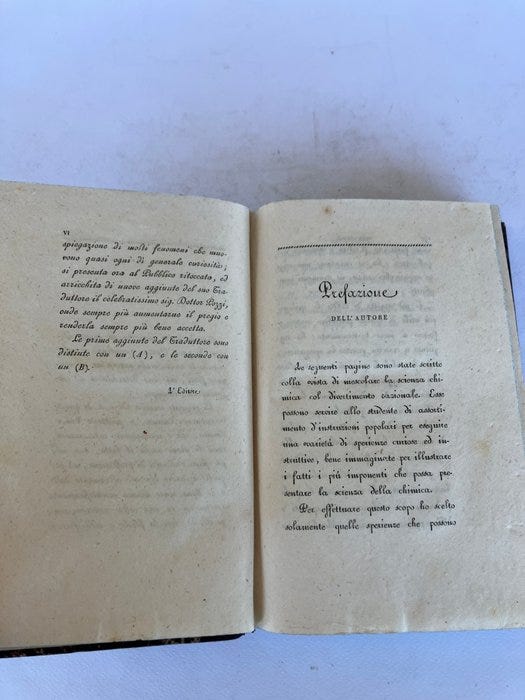 VI
spiegazione di molti fenomeni che muo-
vono quasi ogni dì generale curiosità;
si presenta ora al Pubblico ritoccata, ed
arricchita di nuove aggiunte del suo Tra-
duttore il celebratissimo sig. Dottor Pozzi,
onde sempre più aumentarne il pregio e
renderla sempre più bene accetta.
Le prime aggiunte del Traduttore sono
distinte con un (A), e le seconde con
un (B).
L'Editore
Prefazione
DELL'AUTORE
Le seguenti pagine sono state scritte
colla vista di mescolare la scienza chi-
mica col divertimento razionale. Esse
possono servire allo studente di assorti-
mento d'instruzioni popolari per eseguire
una varietà di sperienze curiose ed in-
struttive, bene immaginate per illustrare
i fatti i più imponenti che possa pre-
sentare la scienza della chimica.
Per effettuare questo scopo ho scelto
solamente quelle sperienze che possono